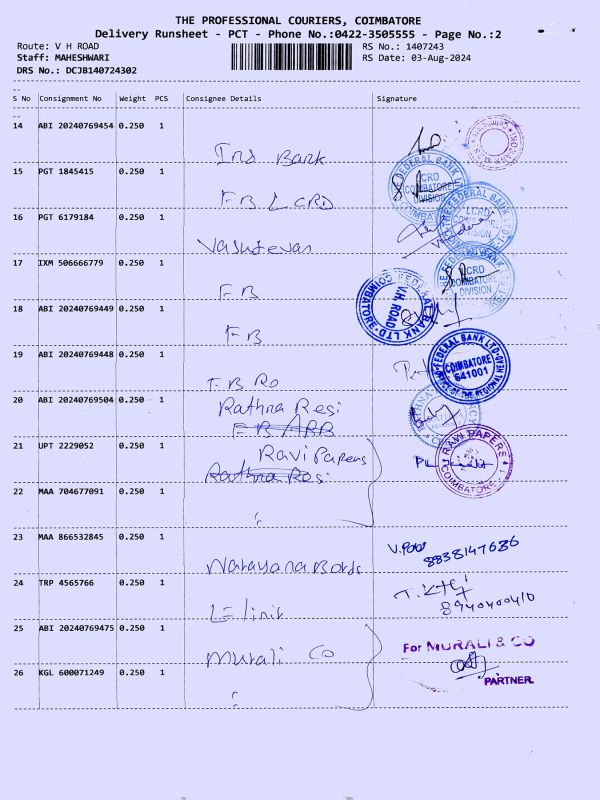 THE PROFESSIONAL COURIERS, COIMBATORE
Delivery Runsheet - PCT - Phone No.:0422-3505555 - Page No.:2
Route: V H ROAD RS No.: 1407243
Staff: MAHESHWARI RS Date: 03-Aug-2024
DRS No.: DCJB140724302
S No Consignment No Weight PCS Consignee Details Signature
14 ABI 20240769454 0.250 1
Ind Bank
15 PGT 1845415 0.250 1
FEDERAL BANK LTD LCRD COIMBATORE DIVISION
F B LCRD
16 PGT 6179184 0.250 1
THE FEDERAL BANK LTD LCRD DIVISION
Vasudevan
17 IXM 506666779 0.250 1
LCRD COIMBATORE DIVISION
F B
18 ABI 20240769449 0.250 1
FEDERAL BANK LTD. V.H. ROAD COIMBATORE
F B
19 ABI 20240769448 0.250 1
FEDERAL BANK LTD COIMBATORE 641001
F B Ro
20 ABI 20240769504 0.250 1
Rathna Resi
F B ARB
21 UPT 2229052 0.250 1
Ravi Papers
RAVI PAPERS COIMBATORE - 1
Rathna Resi
22 MAA 704677091 0.250 1
23 MAA 866532845 0.250 1
V.Pobi
8838147686
Narayana Bords
24 TRP 4565766 0.250 1
8940400410
25 ABI 20240769475 0.250 1
For MURALI & CO
Murali Co
26 KGL 600071249 0.250 1
PARTNER.